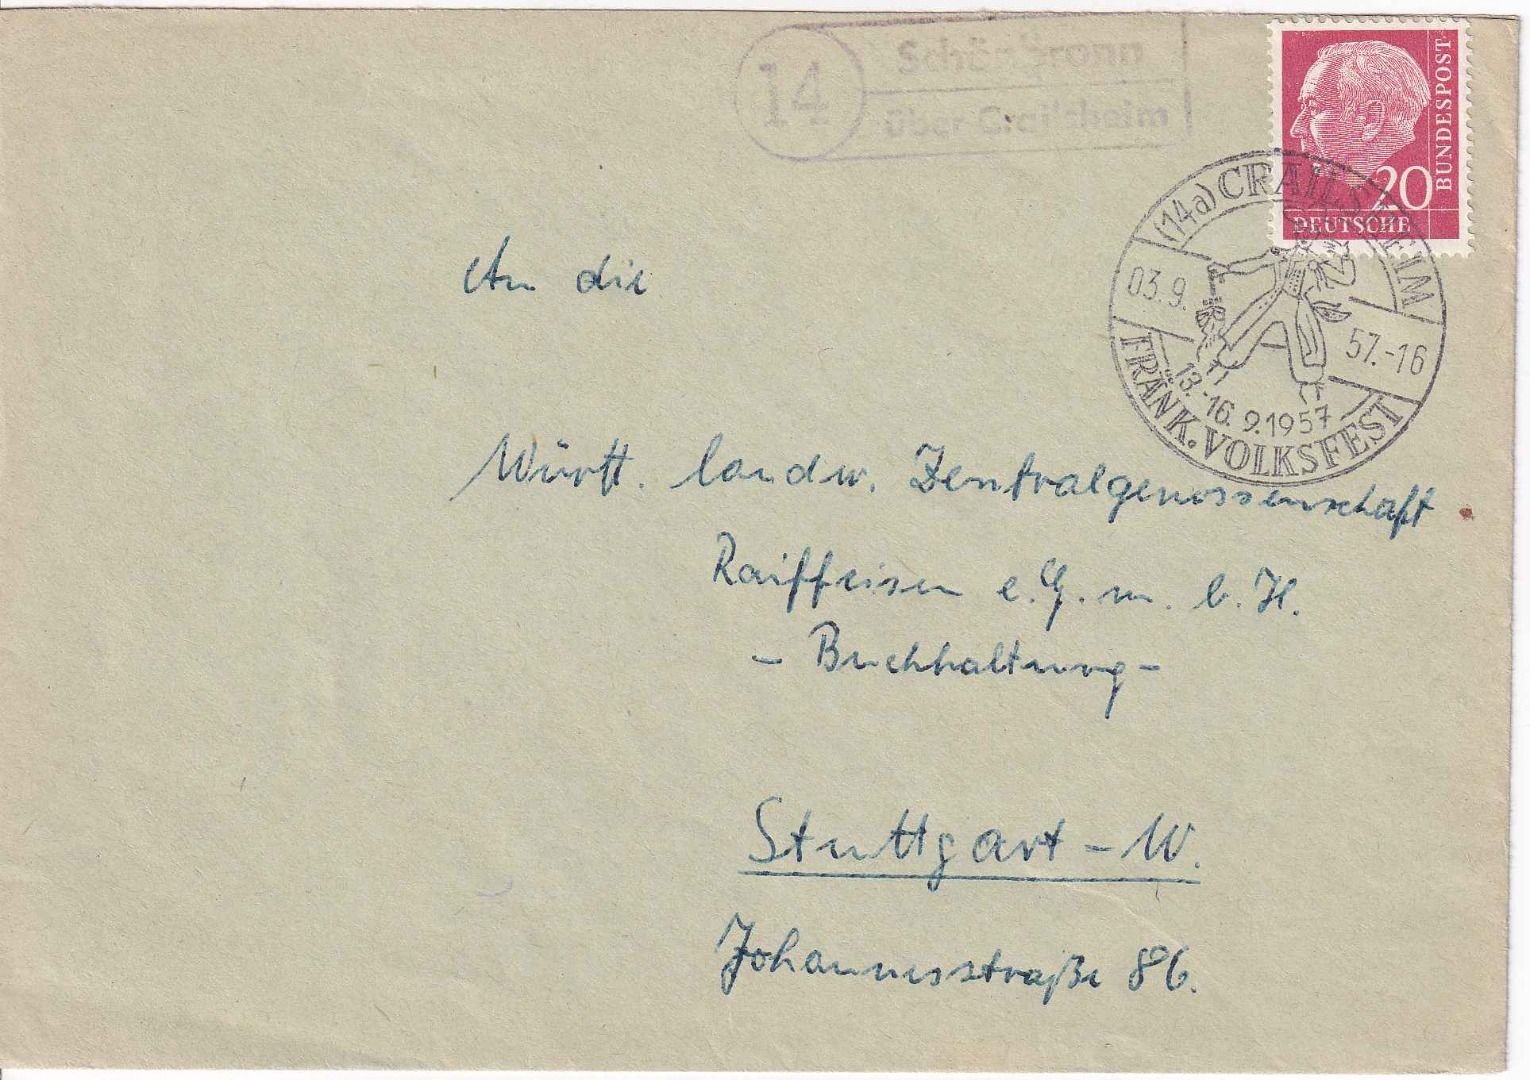 14
Schönbronn
über Crailsheim
BUNDESPOST
20
DEUTSCHE
(14a) CRAILSHEIM
03.9.
57.-16
13.-16.9.1957
FRÄNK. VOLKSFEST
An die
Württ. landw. Zentralgenossenschaft
Raiffeisen e.G.m.b.H.
- Buchhaltung -
Stuttgart - W.
Johannesstraße 86.